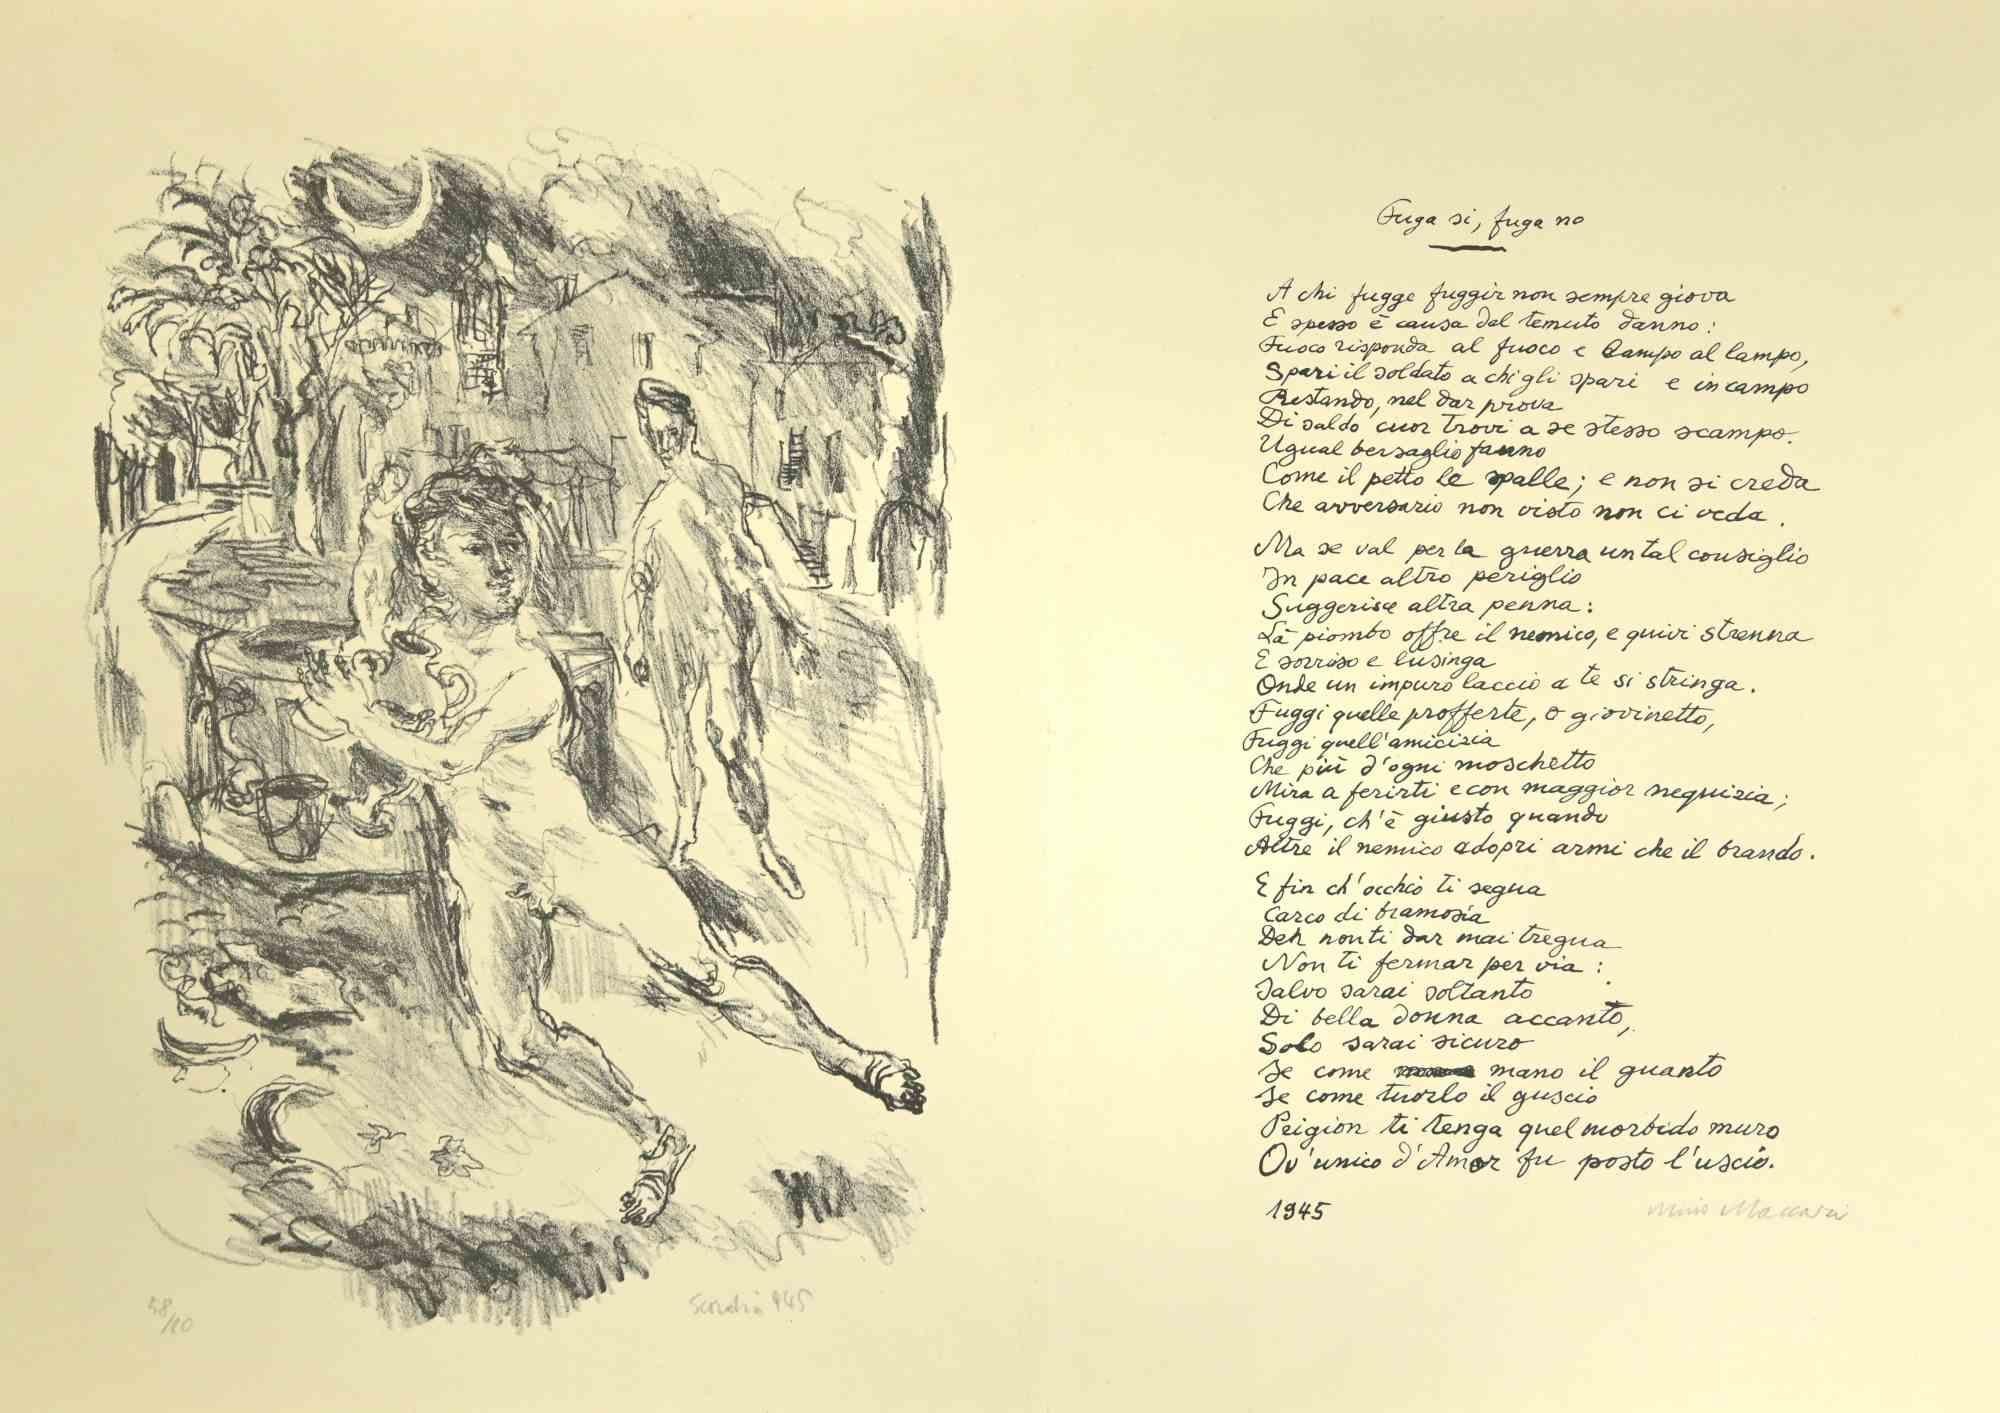 Fuga si, fuga no
A chi fugge fuggir non sempre giova
E spesso è causa del temuto danno:
Fuoco risponda al fuoco e lampo al lampo,
Spari il soldato a chi gli spari e in campo
Restando, nel dar prova
Di saldo cuor trovi a se stesso scampo.
Ugual bersaglio fanno
Come il petto le spalle; e non si creda
Che avversario non visto non ci veda.
Ma se val per la guerra un tal consiglio
In pace altro periglio
Suggerisce altra penna:
Là piombo offre il nemico, e quivi strenna
E sorriso e lusinga
Onde un impuro laccio a te si stringa.
Fuggi quelle profferte, o giovinetto,
Fuggi quell'amicizia
Che più d'ogni moschetto
Mira a ferirti e con maggior nequizia;
Fuggi, ch'è giusto quando
Altre il nemico adopri armi che il brando.
E fin ch'occhio ti segua
Carco di bramosia
Deh non ti dar mai tregua
Non ti fermar per via:
Salvo sarai soltanto
Di bella donna accanto,
Solo sarai sicuro
Se come mano il guanto
Se come tuorlo il guscio
Prigion ti tenga quel morbido muro
Ov'unico d'Amor fu posto l'uscio.
1945
Mino Maccari
58
945